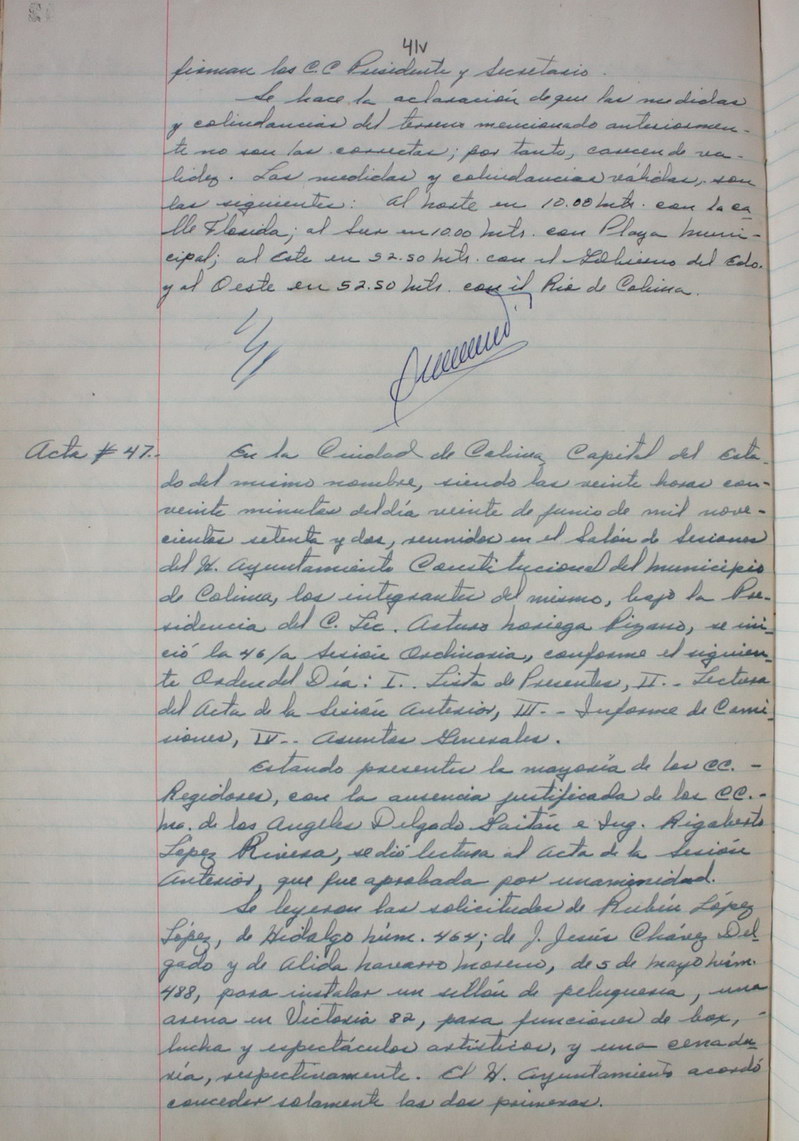 41v
firman los C.C Presidente y Secretario.
Se hace la aclaración de que las medidas
y colindancias del terreno mencionado anteriormen-
te no son las correctas; por tanto, carecen de va-
lidez. Las medidas y colindancias válidas, son
las siguientes: Al norte en 10.00 Mts. con la ca-
lle Florida; al Sur en 10.00 Mts. con Playa Muni-
cipal; al Este en 52.50 Mts. con el Gobierno del Edo.
y al Oeste en 52.50 Mts. con el Río de Colima.
Acta # 47.-
En la Ciudad de Colima, Capital del Esta-
do del mismo nombre, siendo las veinte horas con-
veinte minutos del día veinte de junio de mil nove-
cientos setenta y dos, reunidos en el Salón de Sesiones
del H. Ayuntamiento Constitucional del Municipio
de Colima, los integrantes del mismo, bajo la Pre-
sidencia del C. Lic. Arturo Noriega Pizano, se ini-
ció la 46/a Sesión Ordinaria, conforme el siguien-
te Orden del Día: I.- Lista de Presentes, II.- Lectura
del Acta de la Sesión Anterior, III.- Informe de Comi-
siones, IV.- Asuntos Generales.
Estando presentes la mayoría de los CC. -
Regidores, con la ausencia justificada de los CC.-
Ma. de los Angeles Delgado Gaitán e Ing. Rigoberto
López Rivera, se dió lectura al Acta de la Sesión
Anterior, que fue aprobada por unaminidad.
Se leyeron las solicitudes de Rubén López
López, de Hidalgo Núm. 464; de J. Jesús Chávez Del-
gado y de Alida Navarro Moreno, de 5 de Mayo Núm.
488, para instalar un sillón de peluquería, una
arena en Victoria 82, para funciones de box, -
lucha y espectáculos artísticos, y una cenadu-
ría, respectivamente. El H. Ayuntamiento acordó
conceder solamente las dos primeras.